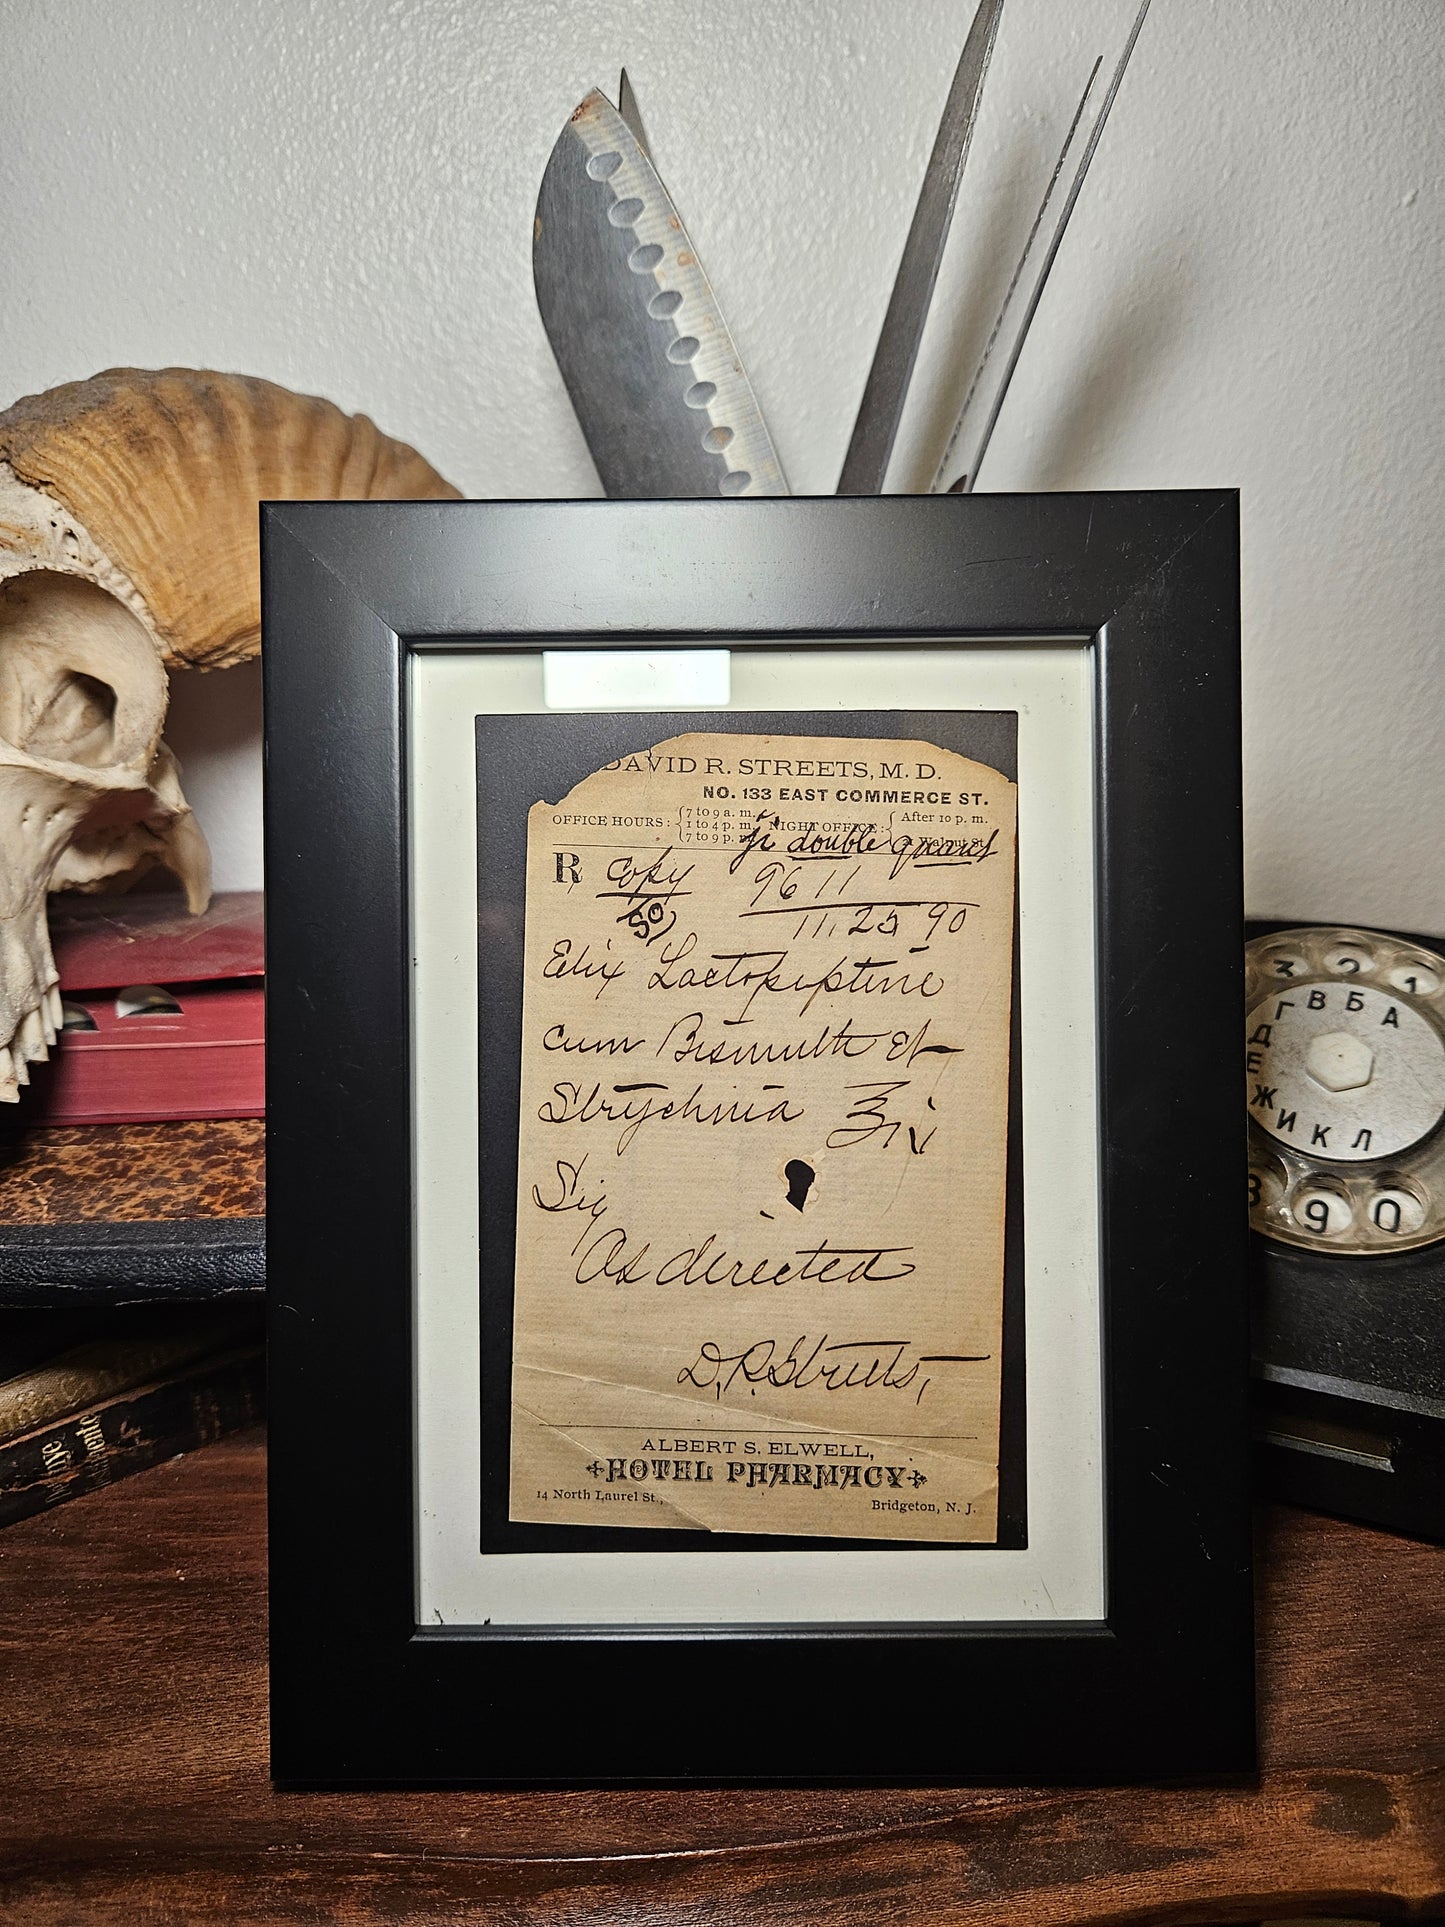 DAVID R. STREETS, M. D.
NO. 133 EAST COMMERCE ST.
OFFICE HOURS: 7 to 9 a. m. 1 to 4 p. m. 7 to 9 p. NIGHT OFFICE: After 10 p. m. Walnut St.
double quant
℞ Copy 9611
50 11, 25 90
Elix Lactopeptine
cum Bismuth Et
Strychnia ℥iv
Sig
As directed
D. R. Streets,
ALBERT S. ELWELL,
HOTEL PHARMACY
14 North Laurel St., Bridgeton, N. J.
3 2 1
Д Г В Б А
Е Ж И К Л
8 9 0